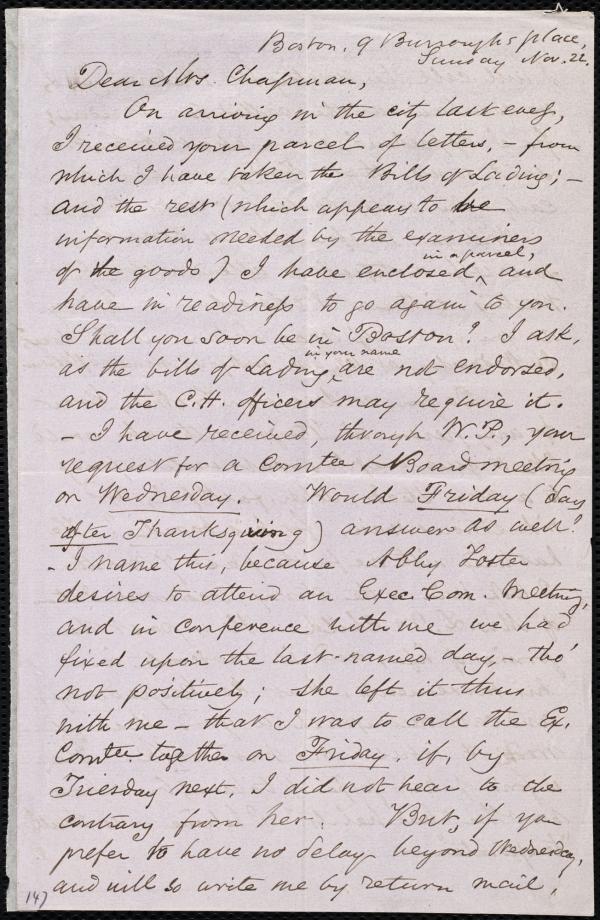 Boston. 9 Burroughs place,
Sunday Nov. 22.
Dear Mrs. Chapman,
On arriving in the city last eveg,
I received your parcel of letters, - from
which I have taken the Bills of Lading; -
and the rest (which appears to be
information needed by the examiners
of the goods) I have enclosed, in a parcel, and
have in readiness to go again to you.
Shall you soon be in Boston? I ask,
as the bills of Lading, in your name are not endorsed,
and the C.H. officers may require it.
- I have received, through W.P., your
request for a Comtee & Board meeting
on Wednesday. Would Friday (day
after Thanksgiving) answer as well?
- I name this, because Abby Foster
desires to attend an Exec. Com. Meeting,
and in conference with me we had
fixed upon the last-named day, - tho'
not positively; she left it thus
with me - that I was to call the Ex.
Comtee together on Friday, if, by
Tuesday next, I did not hear to the
contrary from her. But, if you
prefer to have no delay beyond Wednesday,
and will so write me by return mail,
147